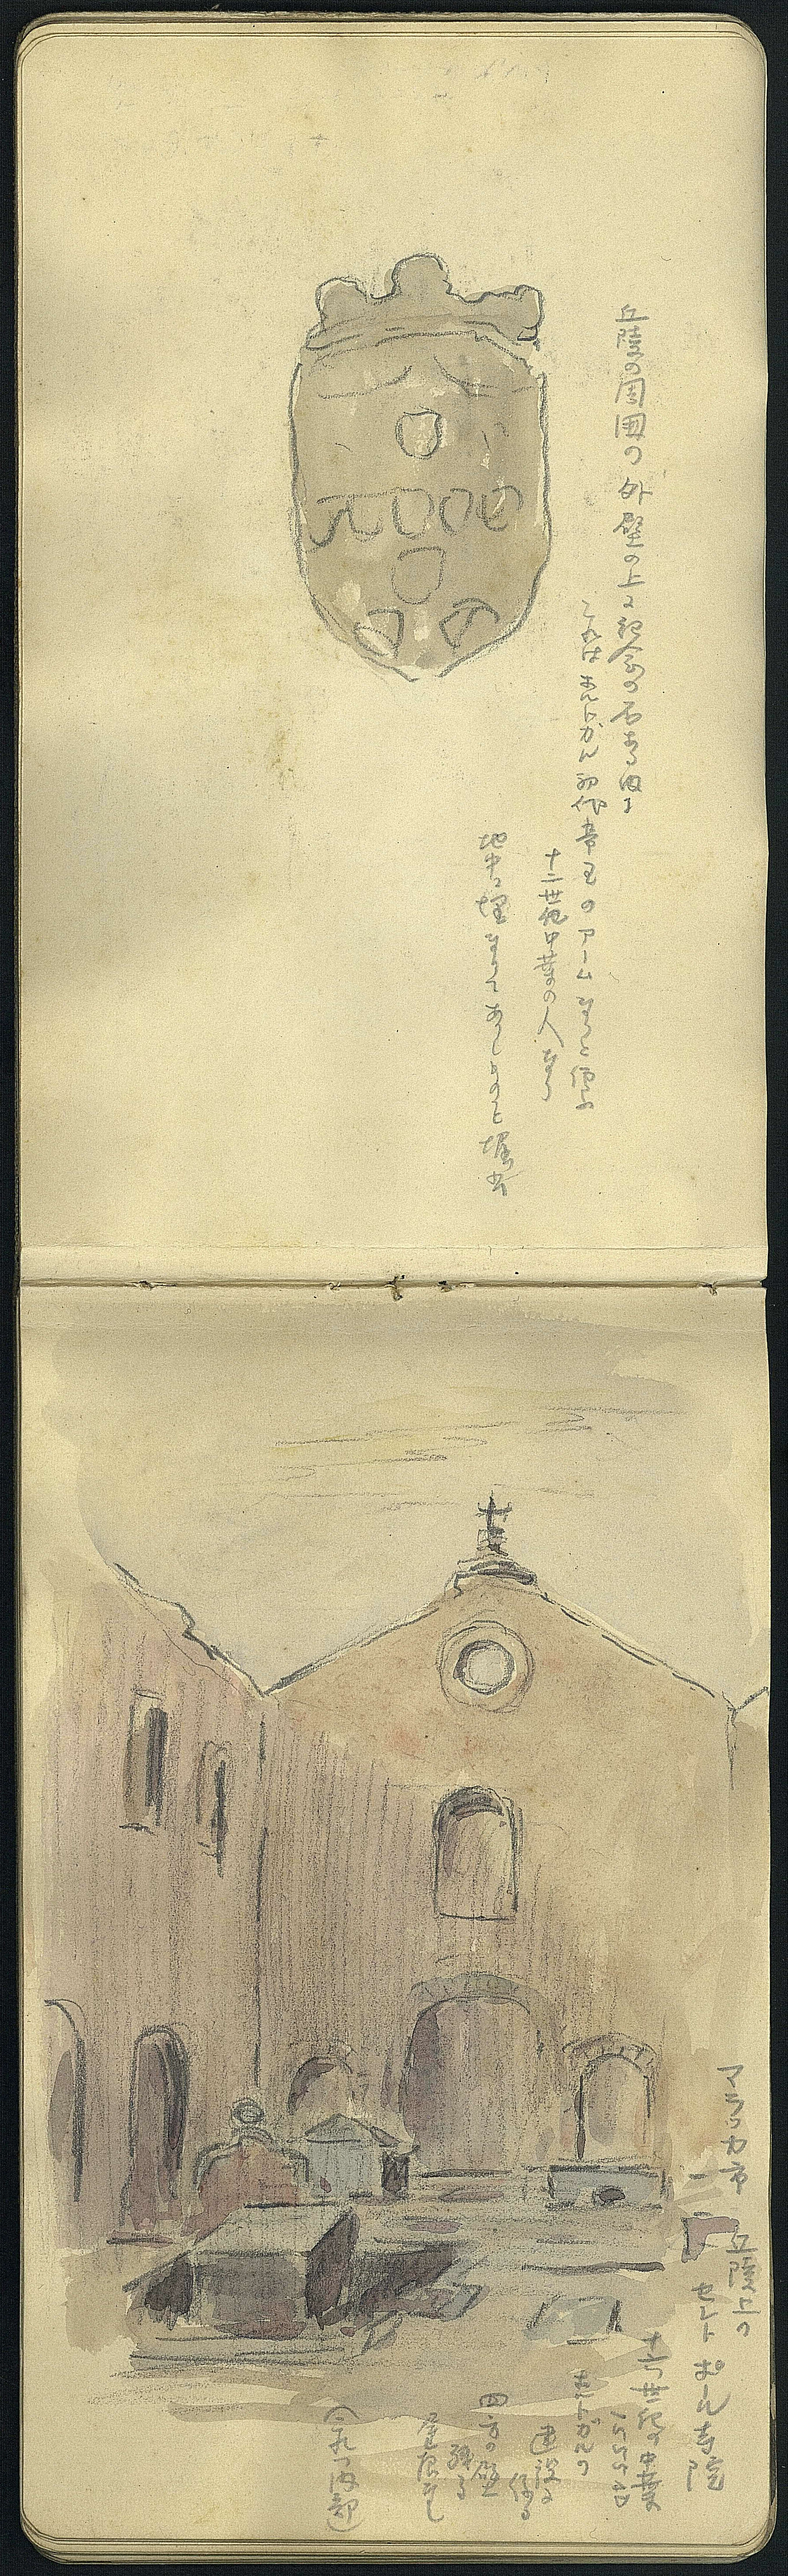 丘陵の周囲の外壁の上に記念の石ある内に
これはホルトガル初代帝王のアームなりと伝ふ
十二世紀中葉の人なり
地中に埋まりてありしものを堀出
マラッカ市
丘陵上の
セントポール寺院
十六世紀の中葉
ホルトガルの
建設に
係る
四方の壁
残る
屋根なし
内部